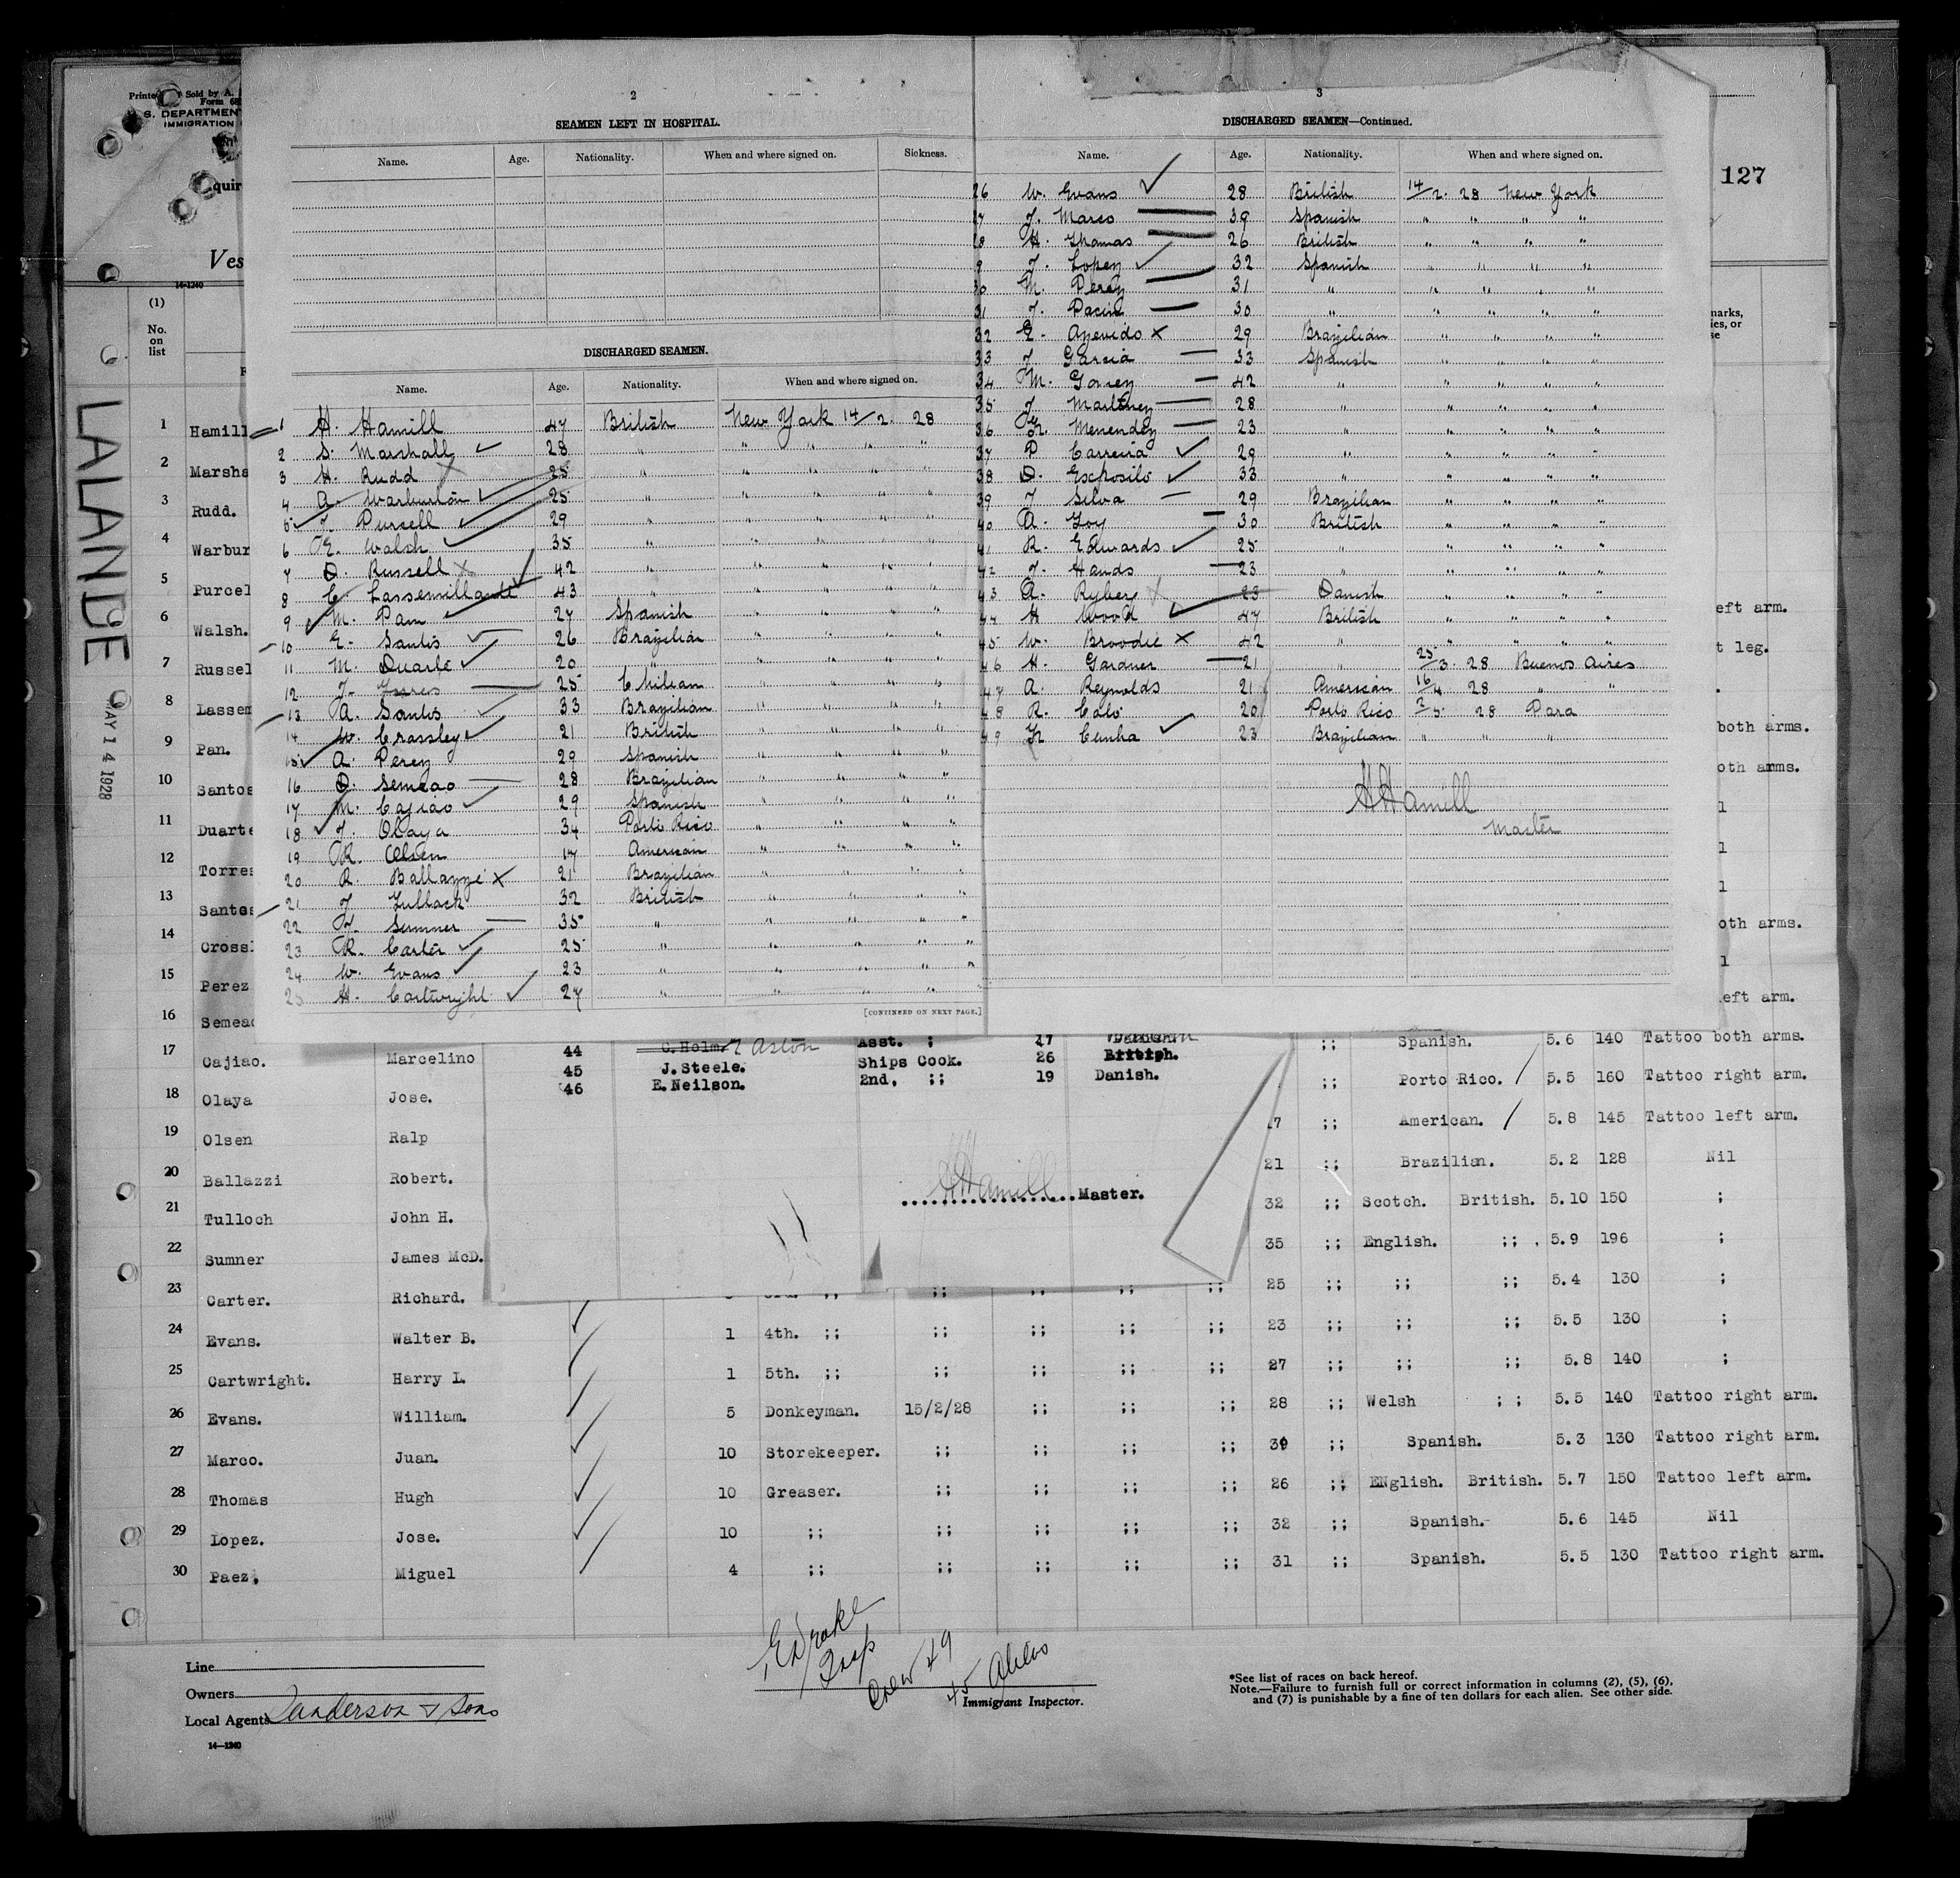 Sold by A.
Form 68
S. DEPARTMENT
IMMIGRATION
quir
Ves
14-1240
127
LALANDE
MAY 14 1928
2
SEAMEN LEFT IN HOSPITAL.
Name. Age. Nationality. When and where signed on. Sickness.
DISCHARGED SEAMEN.
Name. Age. Nationality. When and where signed on.
1 H. Hamill 47 British New York 14/2. 28
2 S. Marshall 28 " " " " "
3 H. Rudd 25 " " " " "
4 A. Warburton 25 " " " " "
5 J. Pursell 29 " " " " "
6 E. Walsh 35 " " " " "
7 D. Russell 42 " " " " "
8 C. Lassemillante 43 " " " " "
9 M. Pam 27 Spanish " " " "
10 E. Santos 26 Brazilian " " " "
11 M. Duarte 20 " " " " "
12 J. 25 Chilean " " " "
13 A. Santos 33 Brazilian " " " "
14 W. Crossley 21 British " " " "
15 A. Perez 29 Spanish " " " "
16 D. Semeao 28 Brazilian " " " "
17 M. Cajiao 29 Spanish " " " "
18 J. Olaya 34 Porto Rico " " " "
19 R. Olsen 17 American " " " "
20 R. Ballazzi 21 Brazilian " " " "
21 J. Tulloch 32 British " " " "
22 J. Sumner 35 " " " " "
23 R. Carter 25 " " " " "
24 W. Evans 23 " " " " "
25 H. Cartwright 27 " " " "
[CONTINUED ON NEXT PAGE.]
3
DISCHARGED SEAMEN—Continued.
Name. Age. Nationality. When and where signed on.
26 W. Evans 28 British 14/2. 28 New York
27 J. Marco 39 Spanish " " " "
28 H. Thomas 26 British " " " "
9 J. Lopez 32 Spanish " " " "
30 M. Perez 31 " " " " "
31 J. Pacin 30 " " " " "
32 E. Azevido 29 Brazilian " " " "
33 J. Garcia 33 Spanish " " " "
34 M. Gomez 42 " " " " "
35 J. Martinez 28 " " " " "
36 Menendez 23 " " " " "
37 P. Carreira 29 " " " " "
38 D. Exposito 33 " " " " "
39 J. Silva 29 Brazilian " " " "
40 A. Joy 30 British " " " "
41 R. Edwards 25 " " " " "
42 J. Hands 23 " " " " "
43 A. Ryberg 23 Danish " " " "
44 H Wood 47 British " " " "
45 W. Broodie 42 " " " " "
46 H. Gardner 21 " 25/3. 28 Buenos Aires
47 A. Reynolds 21 American 16/4 28 " "
48 R. Colo 20 Porto Rico 2/5. 28 Para
49 Cunha 23 Brazilian " " "
H Hamill
Master
(1)
No.
on
list
marks,
ies, or
se
1 Hamill
2 Marsha
3 Rudd.
4 Warbur
5 Purcel
6 Walsh.
7 Russel
8 Lassem
9 Pan.
10 Santos
11 Duarte
12 Torres
13 Santos
14 Crossl
15 Perez
16 Semeao
eft arm.
t leg.
both arms.
oth arms.
oth arms.
eft arm.
44 C. Holm. Aston Asst. ; 17
45 J. Steele. Ships Cook. 26 British.
46 E. Neilson. 2nd, ;; 19 Danish.
H Hamill Master.
17 Cajiao. Marcelino ;; Spanish. 5.6 140 Tattoo both arms.
18 Olaya Jose. ;; Porto Rico. 5.5 160 Tattoo right arm.
19 Olsen Ralp 17 ;; American. 5.8 145 Tattoo left arm.
20 Ballazzi Robert. 21 ;; Brazilian. 5.2 128 Nil
21 Tulloch John H. 32 ;; Scotch. British. 5.10 150 ;
22 Sumner James McD. 35 ;; English. ;; 5.9 196 ;
23 Carter. Richard. ;; ;; ;; ;; 25 ;; ;; ;; 5.4 130 ;
24 Evans. Walter B. 1 4th. ;; ;; ;; ;; ;; 23 ;; ;; ;; 5.5 130 ;
25 Cartwright. Harry L. 1 5th. ;; ;; ;; ;; ;; 27 ;; ;; ;; 5.8 140 ;
26 Evans. William. 5 Donkeyman. 15/2/28 ;; ;; ;; 28 ;; Welsh ;; 5.5 140 Tattoo right arm.
27 Marco. Juan. 10 Storekeeper. ;; ;; ;; ;; 39 ;; Spanish. 5.3 130 Tattoo right arm.
28 Thomas Hugh 10 Greaser. ;; ;; ;; ;; 26 ;; ENglish. British. 5.7 150 Tattoo left arm.
29 Lopez. Jose. 10 ;; ;; ;; ;; ;; 32 ;; Spanish. 5.6 145 Nil
30 Paez. Miguel 4 ;; ;; ;; ;; ;; 31 ;; Spanish. 5.5 130 Tattoo right arm.
E Drake
Insp
Crew 49
45 Aliens
Immigrant Inspector.
Line
Owners
Local Agents Sanderson & Sons
14—1240
*See list of races on back hereof.
Note.—Failure to furnish full or correct information in columns (2), (5), (6),
and (7) is punishable by a fine of ten dollars for each alien. See other side.